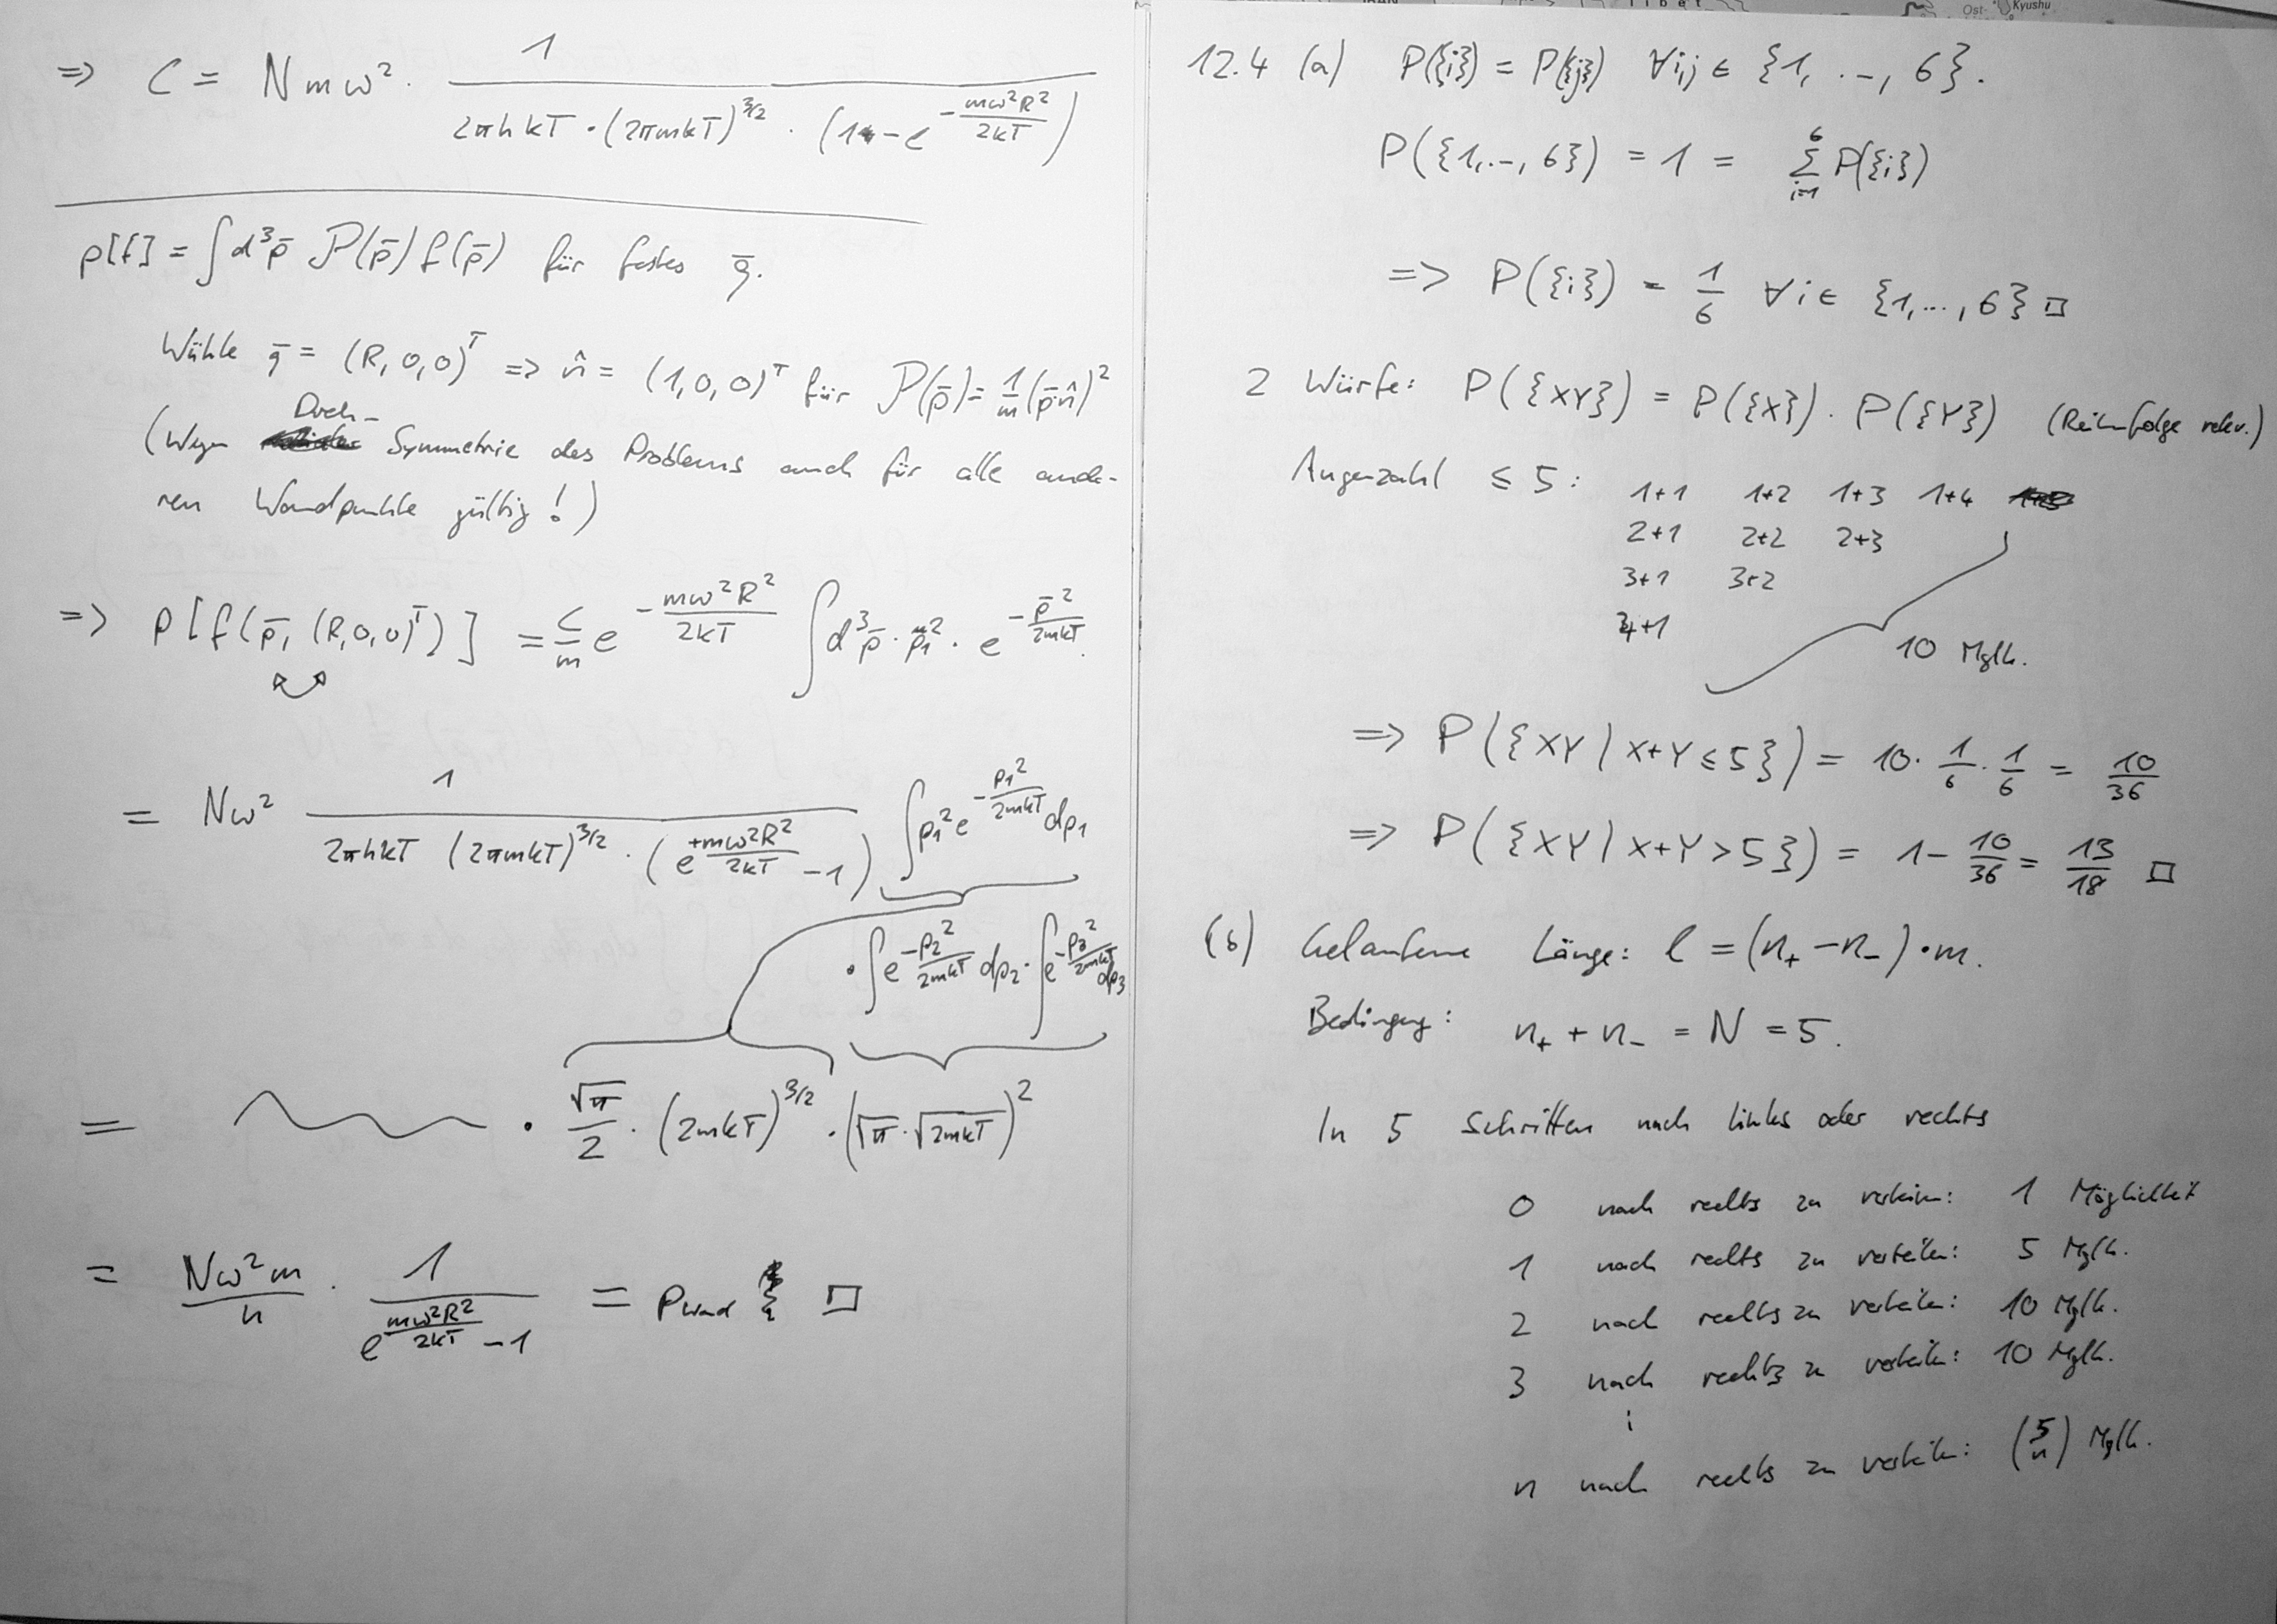 => C = N m ω² · 1 / (2πh kT · (2πmkT)^{3/2} · (1 - e^{-mω²R²/2kT}))
p[f] = ∫ d³p̄ 𝒫(p̄) f(p̄) für festes q̄.
Wähle q̄ = (R, 0, 0)^T => n̂ = (1, 0, 0)^T für 𝒫(p̄) = 1/m (p̄·n̂)²
(Wegen Dreh-Symmetrie des Problems auch für alle ande-
ren Wandpunkte gültig!)
=> p[f(p̄, (R,0,0)^T)] = C/m e^{-mω²R²/2kT} ∫ d³p̄ · p₁² · e^{-p̄²/2mkT}.
= Nω² 1 / (2πhkT (2πmkT)^{3/2} · (e^{+mω²R²/2kT} - 1)) ∫ p₁² e^{-p₁²/2mkT} dp₁
· ∫ e^{-p₂²/2mkT} dp₂ · ∫ e^{-p₃²/2mkT} dp₃
= · √π/2 · (2mkT)^{3/2} · (√π · √2mkT)²
= Nω²m/h · 1 / (e^{mω²R²/2kT} - 1) = p Wand □
12.4 (a) P({i}) = P({j}) ∀i,j ∈ {1, ..., 6}.
P({1, ..., 6}) = 1 = Σ_{i=1}^{6} P({i})
=> P({i}) = 1/6 ∀ i ∈ {1, ..., 6} □
2 Würfe: P({XY}) = P({X}) · P({Y}) (Reihenfolge relev.)
Augenzahl ≤ 5: 1+1 1+2 1+3 1+4
2+1 2+2 2+3
3+1 3+2
4+1
10 Mglk.
=> P({XY | X+Y ≤ 5}) = 10 · 1/6 · 1/6 = 10/36
=> P({XY | X+Y > 5}) = 1 - 10/36 = 13/18 □
(b) Gelaufene Länge: l = (n₊ - n₋) · m.
Bedingung: n₊ + n₋ = N = 5.
In 5 Schritten nach links oder rechts
0 nach rechts zu verteilen: 1 Möglichkeit
1 nach rechts zu verteilen: 5 Mglk.
2 nach rechts zu verteilen: 10 Mglk.
3 nach rechts zu verteilen: 10 Mglk.
⋮
n nach rechts zu verteilen: (5 n) Mglk.